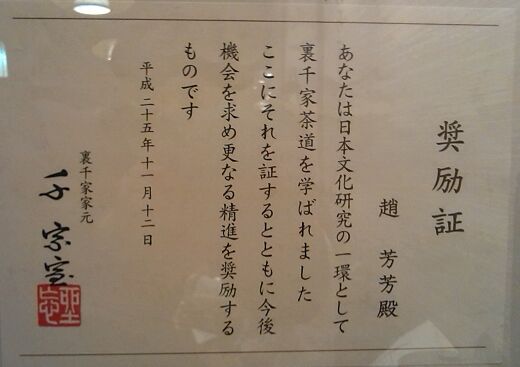 奨励証
趙 芳芳殿
あなたは日本文化研究の一環として
裏千家茶道を学ばれました
ここにそれを証するとともに今後
機会を求め更なる精進を奨励する
ものです
平成二十五年十一月十二日
裏千家家元
千宗室